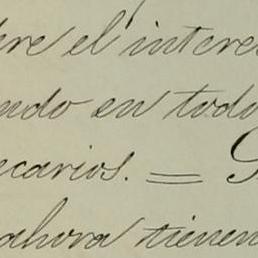 ere el intere
endo en todo
ecarios. =
ahora tienen